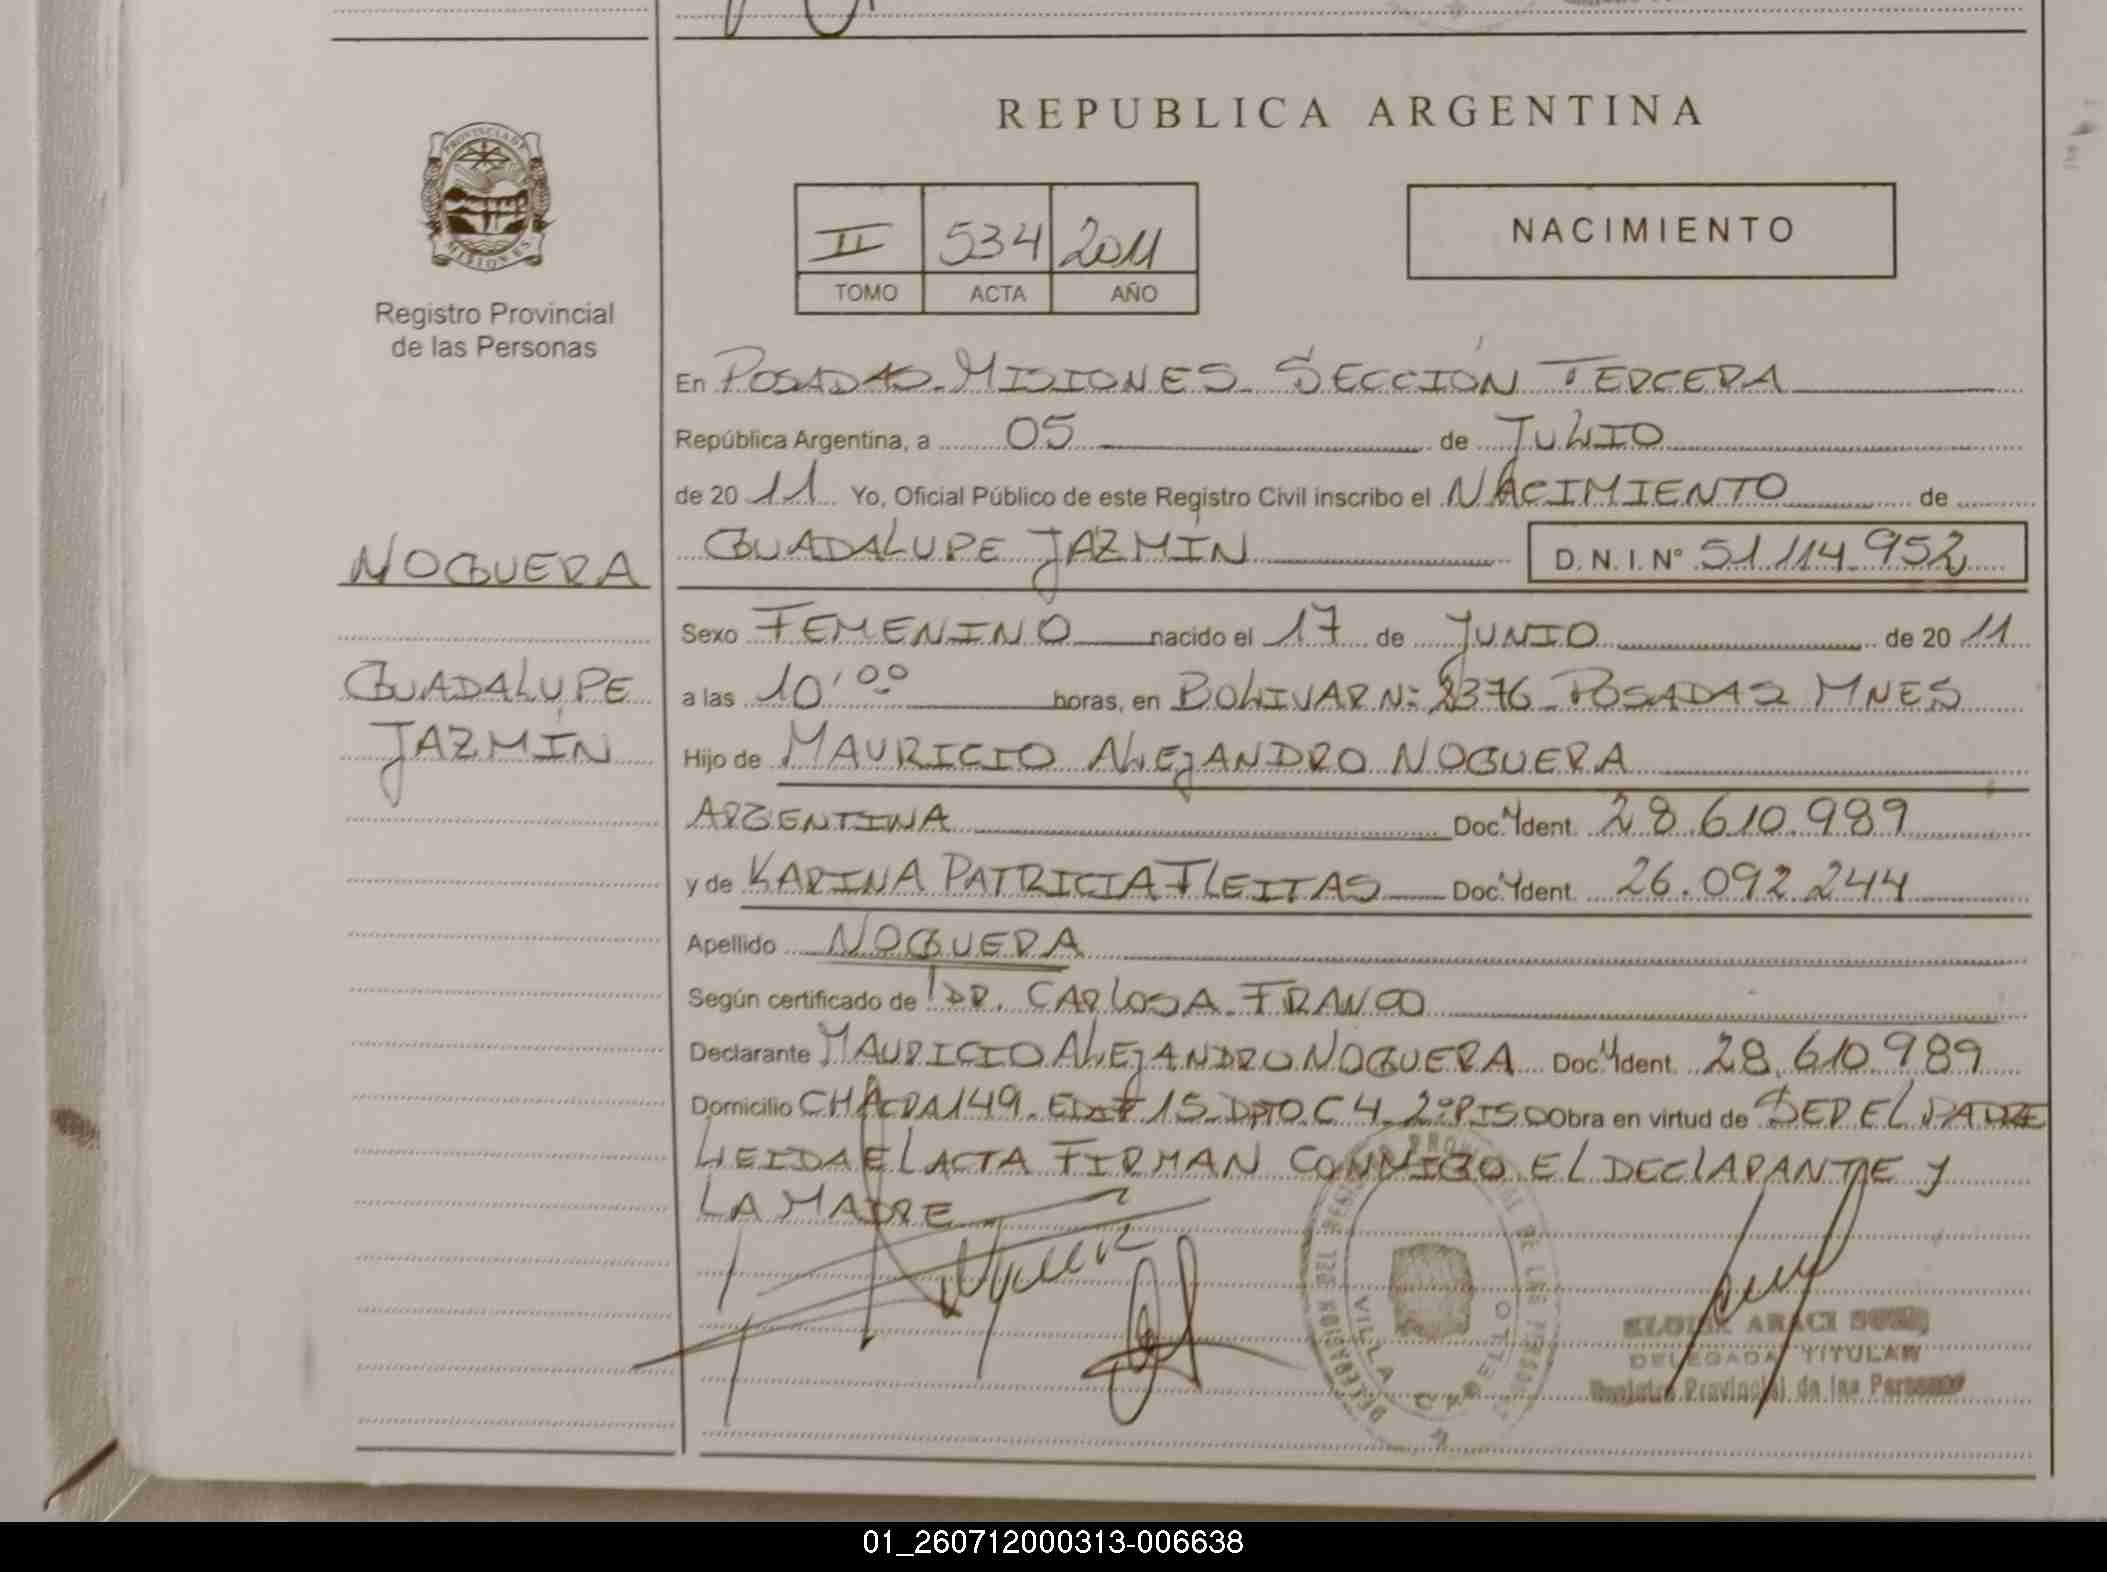 REPUBLICA ARGENTINA
PROVINCIA DE
MISIONES
Registro Provincial
de las Personas
II 534 2011
TOMO ACTA AÑO
NACIMIENTO
En POSADAS-MISIONES- SECCIÓN TERCERA
República Argentina, a 05 de JULIO
de 2011 Yo, Oficial Público de este Registro Civil inscribo el NACIMIENTO de
NOGUERA
GUADALUPE JAZMÍN D. N. I. N° 51.114.952
Sexo FEMENINO nacido el 17 de JUNIO de 2011
GUADALUPE
JAZMÍN
a las 10'00 horas, en BOLIVAR N: 2376 POSADAS MNES
Hijo de MAURICIO ALEJANDRO NOGUERA
ARGENTINA Doc. Ident. 28.610.989
y de KARINA PATRICIA FLEITAS Doc. Ident. 26.092.244
Apellido NOGUERA
Según certificado de DR. CARLOS A. FRANCO
Declarante MAURICIO ALEJANDRO NOGUERA Doc. Ident. 28.610.989
Domicilio CHACRA 149. EDIF 15 DPTO C4 2° PISO Obra en virtud de SER EL PADRE
LEIDA EL ACTA FIRMAN CONMIGO EL DECLARANTE Y
LA MADRE
DELEGACION DEL REGISTRO PROVINCIAL DE LAS PERSONAS
VILLA
DELEGADA TITULAR
Registro Provincial de las Personas
01_260712000313-006638